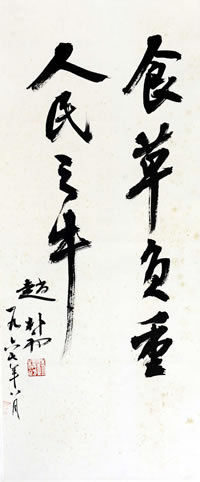 食草负重
人民之牛
赵朴初
一九六七年八月